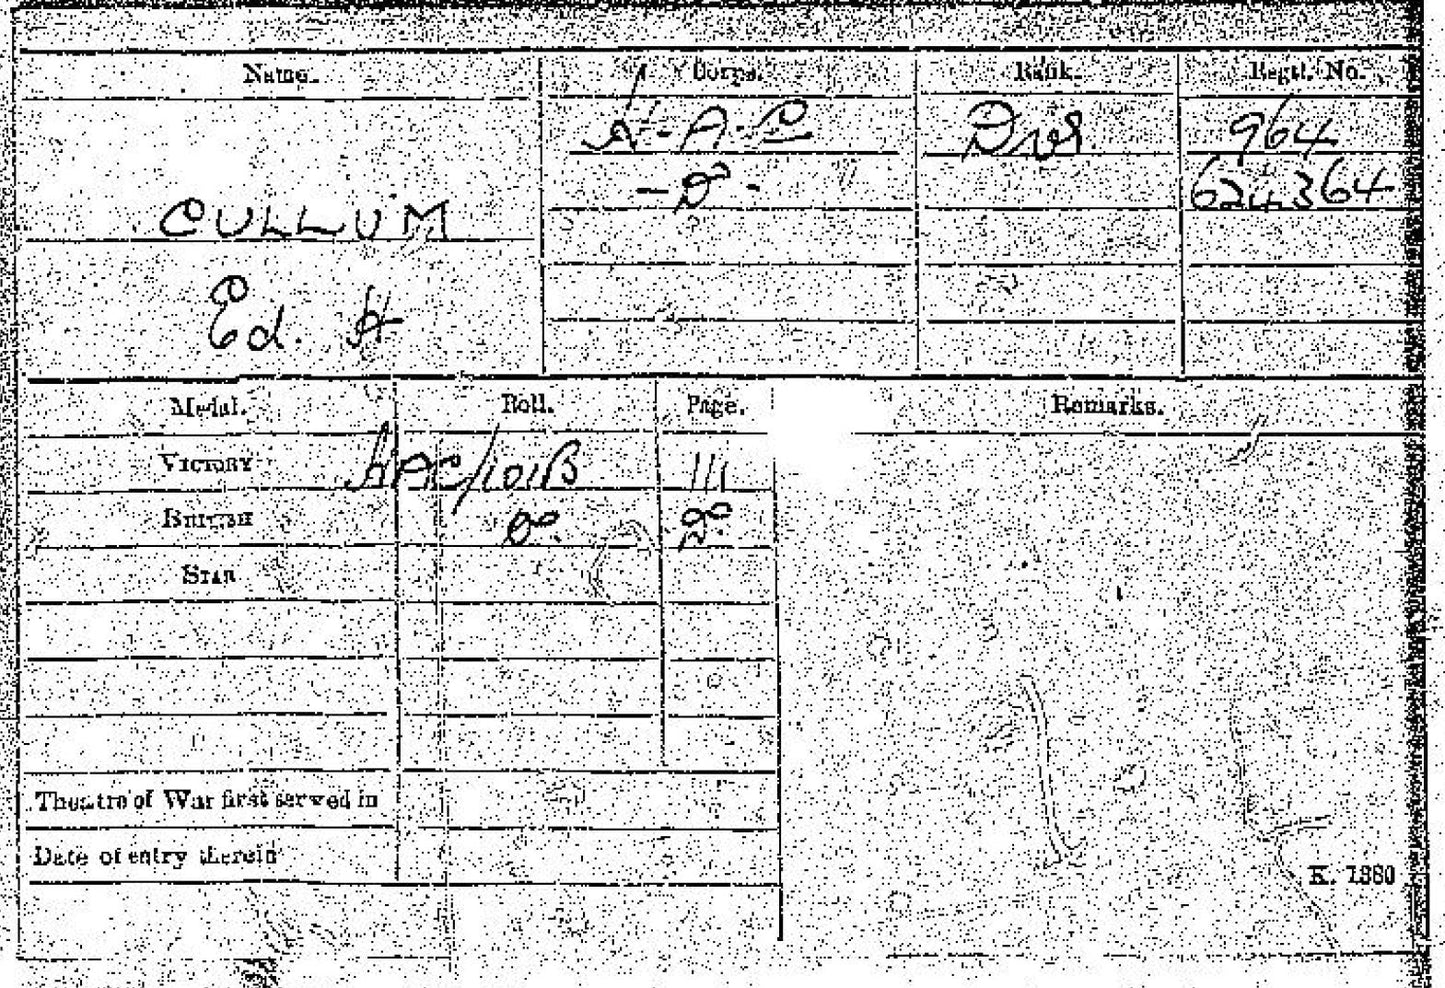 Name. Corps. Rank. Regtl. No.
H.A.C Dvr 964
-Do- 624364
CULLUM
Ed. H
Medal. Roll. Page. Remarks.
VICTORY HAC/101B 111
BRITISH Do. Do
STAR
Theatre of War first served in
Date of entry therein
K. 1380